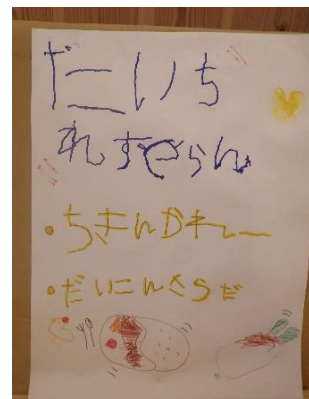 だいち
れすとらん
・ちきんかれー
・だいこんさらだ